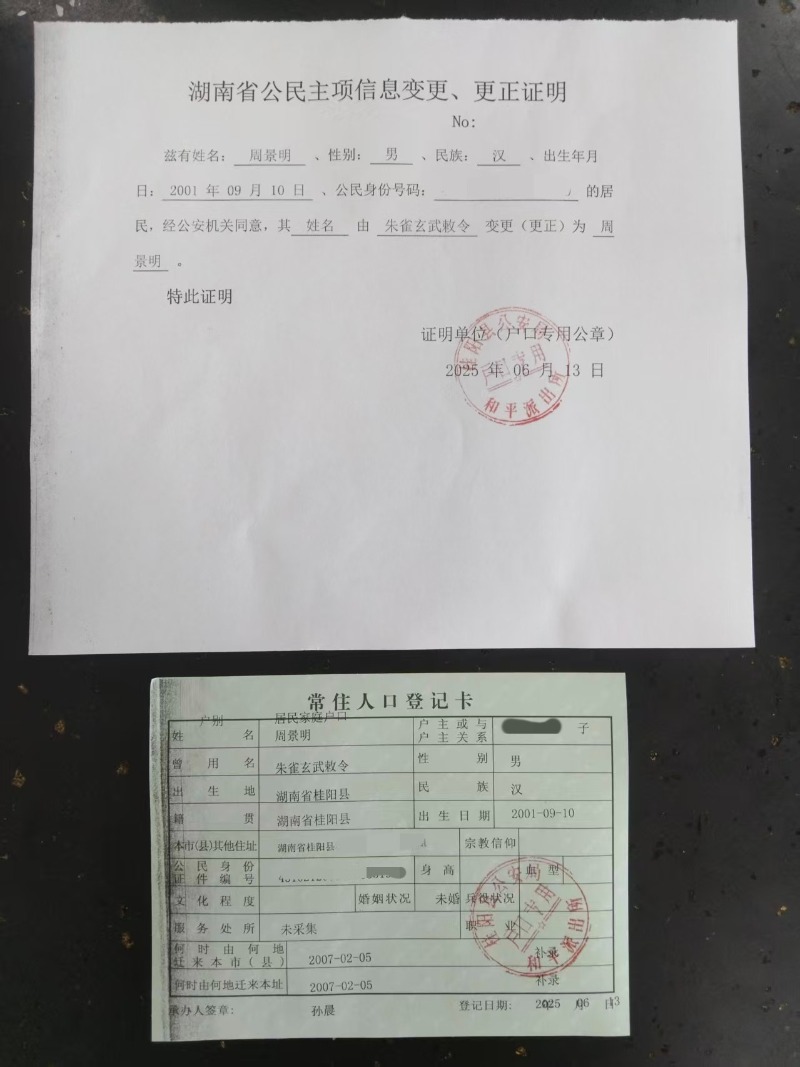 湖南省公民主项信息变更、更正证明
No:
兹有姓名: 周景明 、性别: 男 、民族: 汉 、出生年月
日: 2001 年 09 月 10 日 、公民身份号码: 的居
民,经公安机关同意,其 姓名 由 朱雀玄武敕令 变更(更正)为 周
景明 。
特此证明
证明单位(户口专用公章)
2025 年 06 月 13 日
桂阳县公安局
户口专用
和平派出所
常住人口登记卡
户别 居民家庭户口
姓名 周景明 户主或与户主关系 子
曾用名 朱雀玄武敕令 性别 男
出生地 湖南省桂阳县 民族 汉
籍贯 湖南省桂阳县 出生日期 2001-09-10
本市(县)其他住址 湖南省桂阳县 宗教信仰
公民身份证件编号 身高 血型
文化程度 婚姻状况 未婚 兵役状况
服务处所 未采集 职业
何时由何地迁来本市(县) 2007-02-05 补录
何时由何地迁来本址 2007-02-05 补录
承办人签章: 孙晨 登记日期: 2025 年 06 月 13 日
桂阳县公安局
户口专用
和平派出所